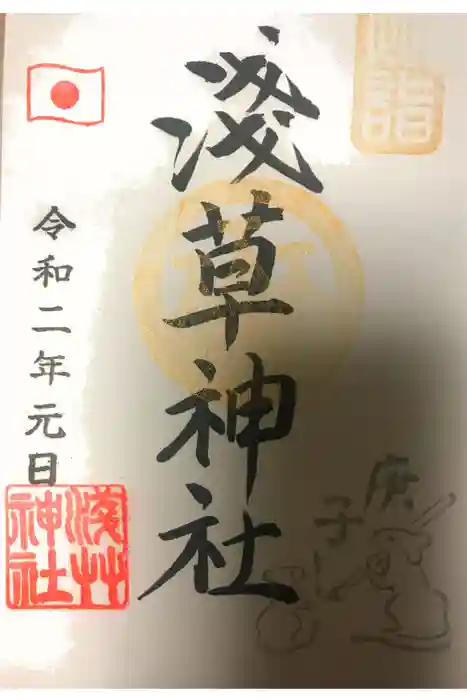 初詣
庚子
淺草神社
令和二年元日
淺草神社